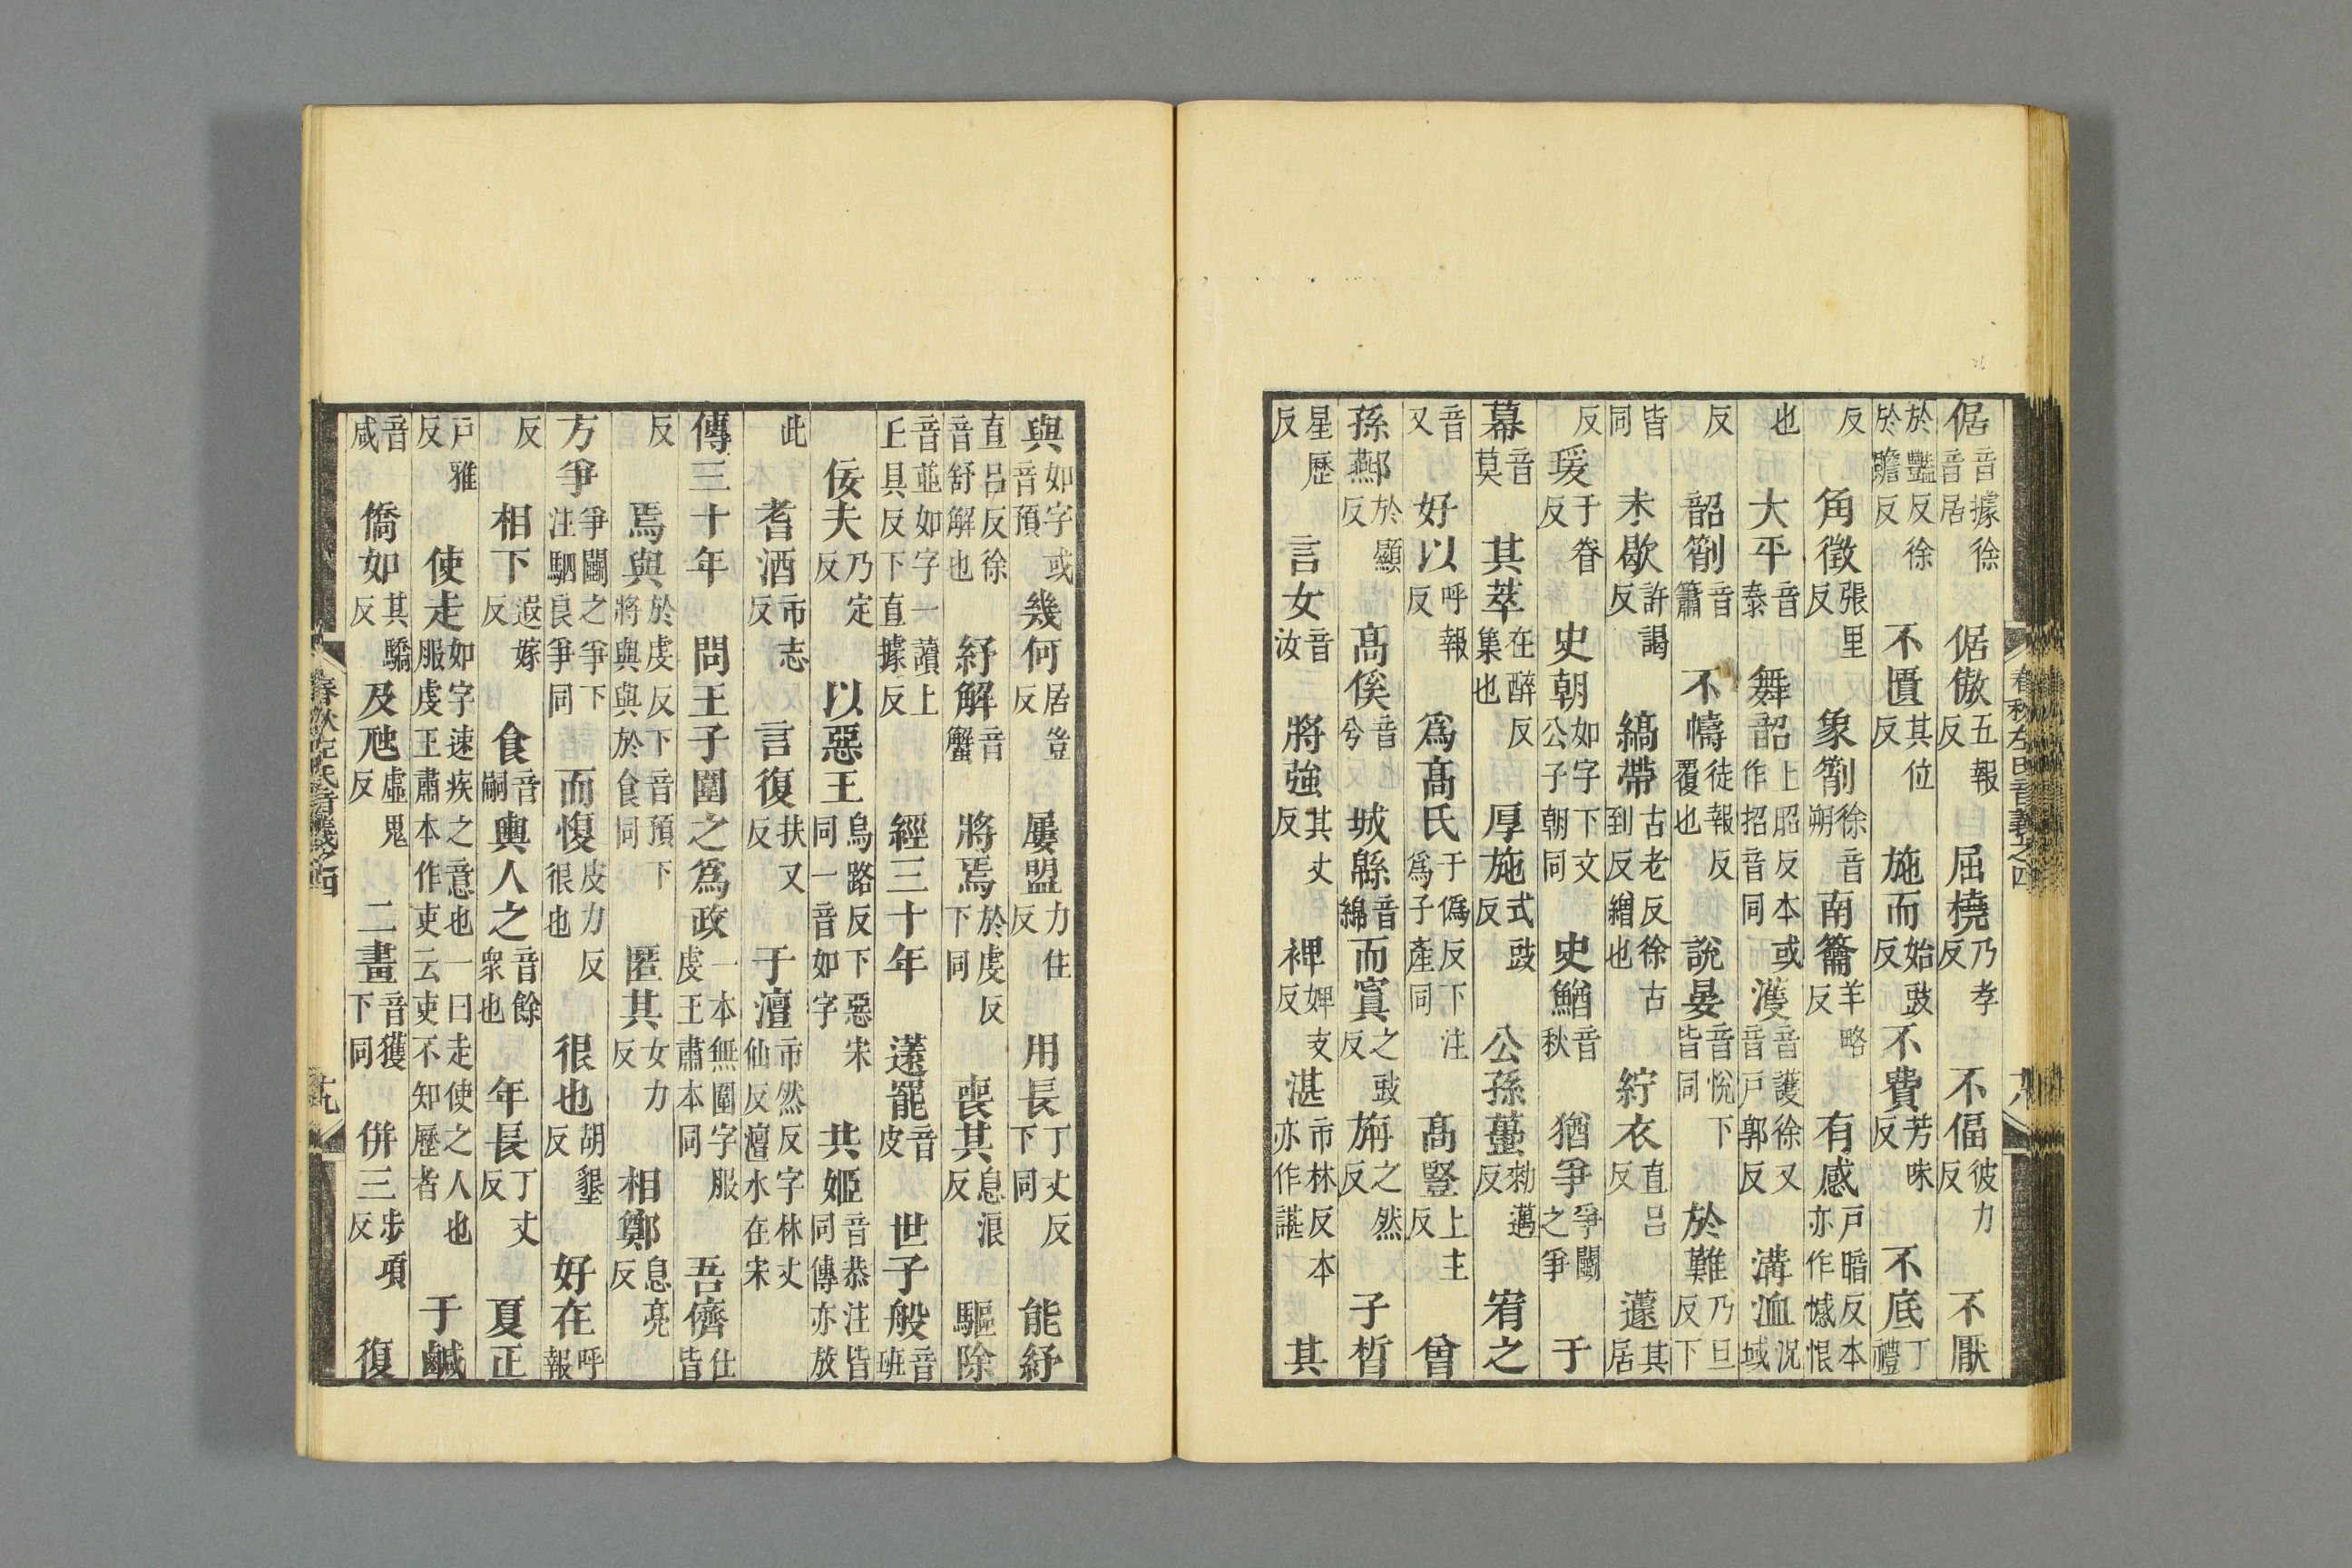 倨音據徐音居 倨傲五報反 屈橈乃孝反 不偪彼力反 不厭
於豔反徐於贍反 不匱其位反 施而始豉反 不費芳味反 不底丁禮
反 角徵張里反 象箾徐音朔 南籥羊略反 有感戶暗反本亦作憾恨
也 大平音泰 舞韶上昭反本或作招音同 濩音護徐又音戶郭反 溝洫況域
反 韶箾音簫 不幬徒報反覆也 說晏音悅下皆同 於難乃旦反下
皆同 未歇許謁反 縞帶古老反徐古到反繒也 紵衣直呂反 蘧其居
反 瑗于眷反 史朝如字下文公子朝同 史鰌音秋 猶爭爭鬭之爭 于
幕音莫 其萃在醉反集也 厚施式豉反 公孫蠆勑邁反 宥之
音又 好以呼報反 爲高氏于僞反下注爲子產同 高豎上主反 曾
孫酀於顯反 高傒音兮 城緜音綿 而寘之豉反 旃之然反 子晳
星歷反 言女音汝 將強其丈反 裨婢支反 湛市林反本亦作諶 其
春秋左氏音義之四 六
與如字或音預 幾何居豈反 屢盟力住反 用長丁丈反下同 能紓
直呂反徐音舒解也 紓解音蟹 將焉於虔反下同 喪其息浪反 驅除
音並如字一讀上丘具反下直據反 經三十年 薳罷音皮 世子般音班
佞夫乃定反 以惡王烏路反下惡宋同一音如字 共姬音恭注皆同傳亦放
此 耆酒市志反 言復扶又反 于澶市然反字林丈仙反澶水在宋
傳三十年 問王子圍之爲政一本無圍字服虔王肅本同 吾儕仕皆
反 焉與於虔反下音預下將與與於食同 匿其女力反 相鄭息亮反
方爭爭鬭之爭下注駟良爭同 而愎皮力反很也 很也胡墾反 好在呼報
反 相下遐嫁反 食音嗣 輿人之音餘衆也 年長丁丈反 夏正
戶雅反 使走如字速疾之意也一曰走使之人也服虔王肅本作吏云吏不知歷者 于鹹
音咸 僑如其驕反 及虺虛鬼反 二畫音獲下同 併三步項反 復
春秋左氏音義之四 十九